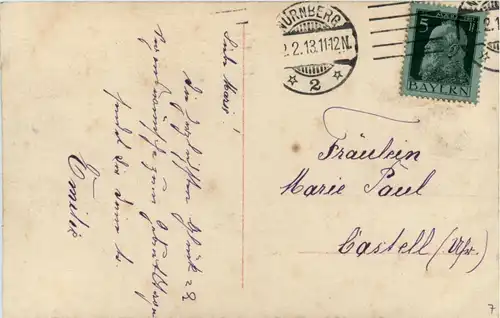 NÜRNBERG
2.2.13.11-12N.
2
5
BAYERN
Liebe Marie!
Die herzlichsten Glück- &
Segenswünsche zum Geburtstage
sendet Dir Deine tr.
Emilie
Fräulein
Marie Paul
Castell (Ufr.)
7